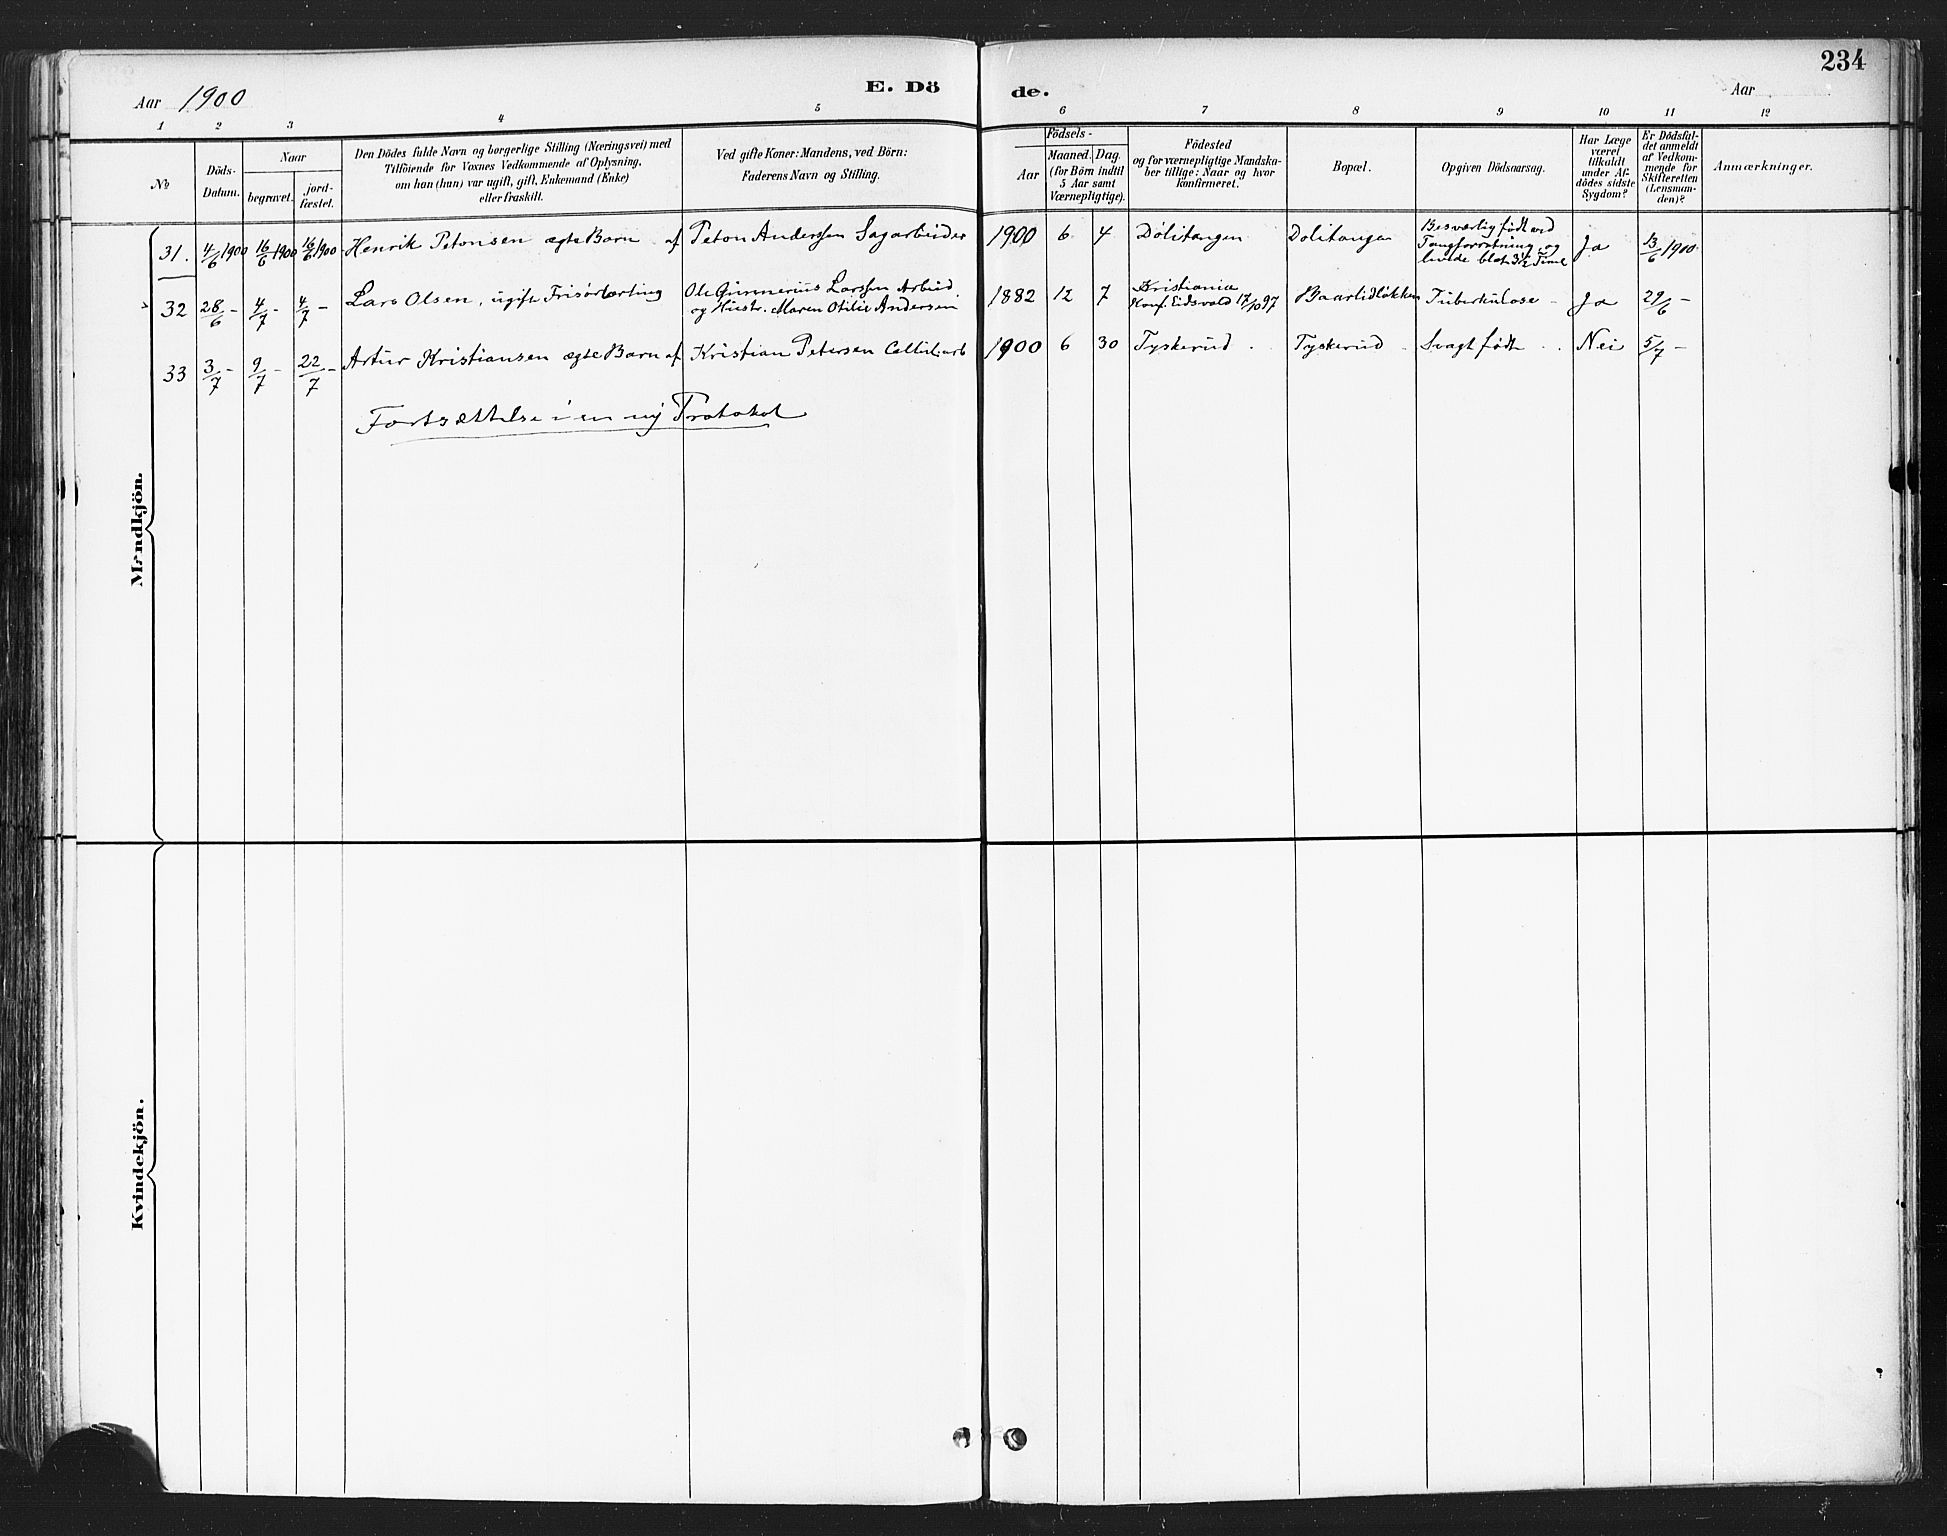 234
Aar 1900
E. Dö
de.
Aar
1 2 3 4 5 6 7 8 9 10 11 12
№
Döds-
Datum.
Naar
begravet.
jord-
fæstet.
Den Dödes fulde Navn og borgerlige Stilling (Næringsvei) med
Tilföiende for Voxnes Vedkommende af Oplysning,
om han (hun) var ugift, gift, Enkemand (Enke)
eller fraskilt.
Ved gifte Koner: Mandens, ved Börn:
Faderens Navn og Stilling.
Födsels-
Aar
Maaned. Dag.
(for Börn indtil
5 Aar samt
Værnepligtige).
Födested
og for værnepligtige Mandska-
ber tillige: Naar og hvor
konfirmeret.
Bopæl.
Opgiven Dödsaarsag.
Har Læge
været
tilkaldt
under Af-
dödes sidste
Sygdom?
Er Dödsfal-
det anmeldt
af Vedkom-
mende for
Skifteretten
(Lensman-
den)?
Anmærkninger.
Mandkjön.
31. 4/6 1900 16/6 1900 16/6 1900 Henrik Petonsen ægte Barn af Peton Anderssen Sagarbeider 1900 6 4 Dölitangen Dolitangen Besværlig født ved
Tangforretning og
levede blot 3½ Time Ja 13/6 1900
32 28/6 - 4/7 - 4/7 - Lars Olsen, ugift Frisörlærling Ole Gunnerius Larssen Arbeid
og Hustr. Maren Otilie Andersen 1882 12 7 Kristiania
Konf. Eidsvold 17/10 97 Baarlidløkken Tuberkulose - Ja 29/6 -
33 3/7 - 9/7 - 22/7 - Artur Kristiansen ægte Barn af Kristian Petersen Cellul.arb 1900 6 30 Tyskerud . Tyskerud . Svagt født . . Nei 5/7 -
Fortsættelse i en ny Protokol
Kvindekjön.